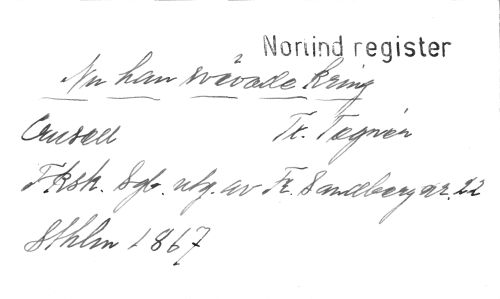 Norlind register
Nu han svävade kring
Crusell Tx. Tegnér
Fksk. Sgb. utg. av Fr. Sandberg nr. 22
Sthlm 1867